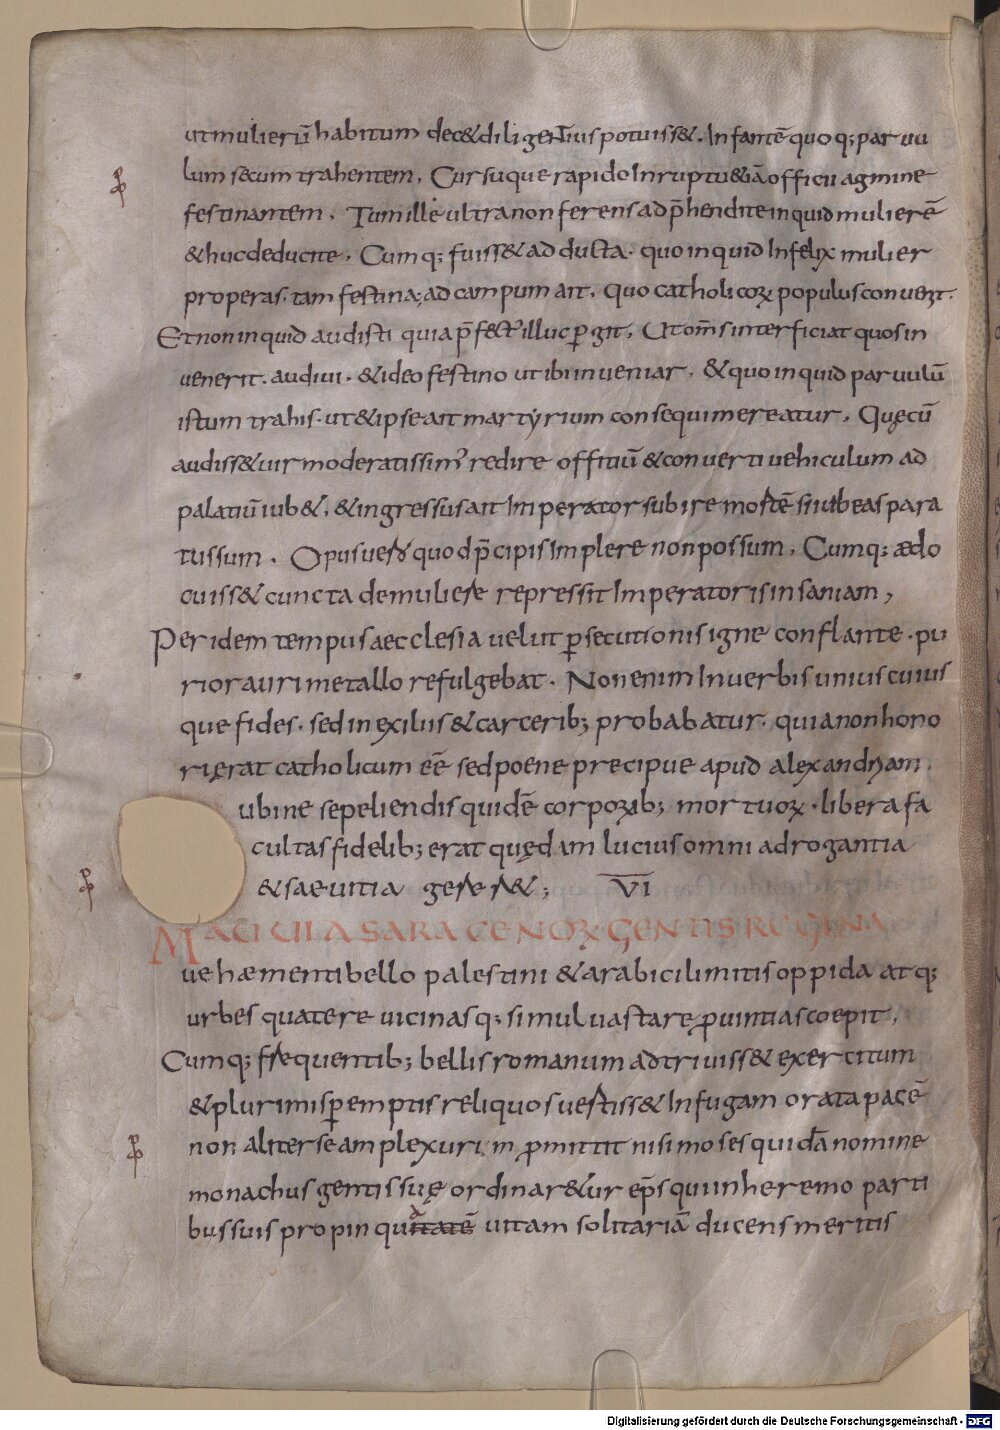 ut mulierū habitum dec& diligentius potuiss&. Infantē quoq; paruu
lum secum trahentem. Cursuque rapido Inruptu& iā officii agmine
festinantem. Tum ille ultra non ferens adp̄hendite inquid mulierē
& huc deducite. Cumq; fuiss& adducta. quo inquid Infelix mulier
properas. tam festina; ad campum ait. quo catholicoꝝ populus conuenit.
Et non inquid audisti quia p̄fectꝰ illuc ꝑgit. Ut om̄s interficiat quos in
uenerit. audiui. & ideo festino ut ibi inueniar. & quo inquid paruulū
istum trahis. ut & ipse ait martyrium consequi mereatur. Quęcū
audiss& uir moderatissimꝰ redire offitiū & conuerti uehiculum ad
palatiū iub&. & ingressus ait Imperator subire mortē si iubeas para
tus sum. Opus uero quod p̄cipis Implere non possum. Cumq; ædo
cuiss& cuncta de muliere repressit Imperatoris insaniam,
Per idem tempus aecclesia uelut ꝑsecutionis igne conflante. pu
rior auri metallo refulgebat. Non enim In uerbis unius cuius
que fides. sed in exiliis & carcerib; probabatur. quia non hono
ri ęrat catholicum eē sed poene precipue apud alexandriam.
ubi ne sepeliendis quidē corporib; mortuoꝝ. libera fa
cultas fidelib; erat quędam lucius omni adrogantia
& saeuitia gerer&; VI
MAUUIA SARACENOꝝ GENTIS REGINA
uehæmenti bello palestini & arabici limitis oppida atq;
urbes quatere uicinasq; simul uastare ꝓuintias coepit.
Cumq; frequentib; bellis romanum adtriuiss& exercitum
& plurimis ꝑemptis reliquos uertiss& In fugam orata pacē
non aliter se amplexuri m ꝓmittit nisi moses quidā nomine
monachus gentis suę ordinar&ur ep̄s qui in heremo parti
bus suis propinquitatē a uitam solitariā ducens meritis
Digitalisierung gefördert durch die Deutsche Forschungsgemeinschaft - DFG